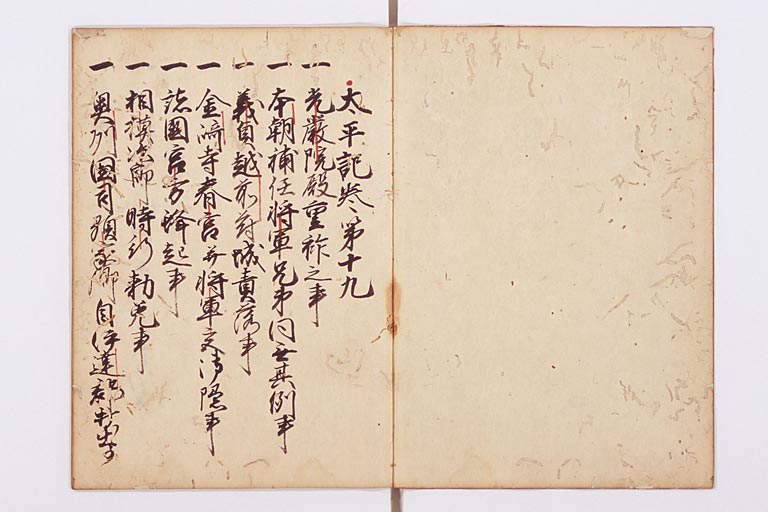 太平記巻第十九
一 光厳院殿重祚之事
一 本朝補任将軍兄弟同無其例事
一 義貞越前府城責落事
一 金崎寺春宮并将軍宮御隠事
一 諸国宮方蜂起事
一 相模次郎時行勅免事
一 奥州国司顕家卿自伊達